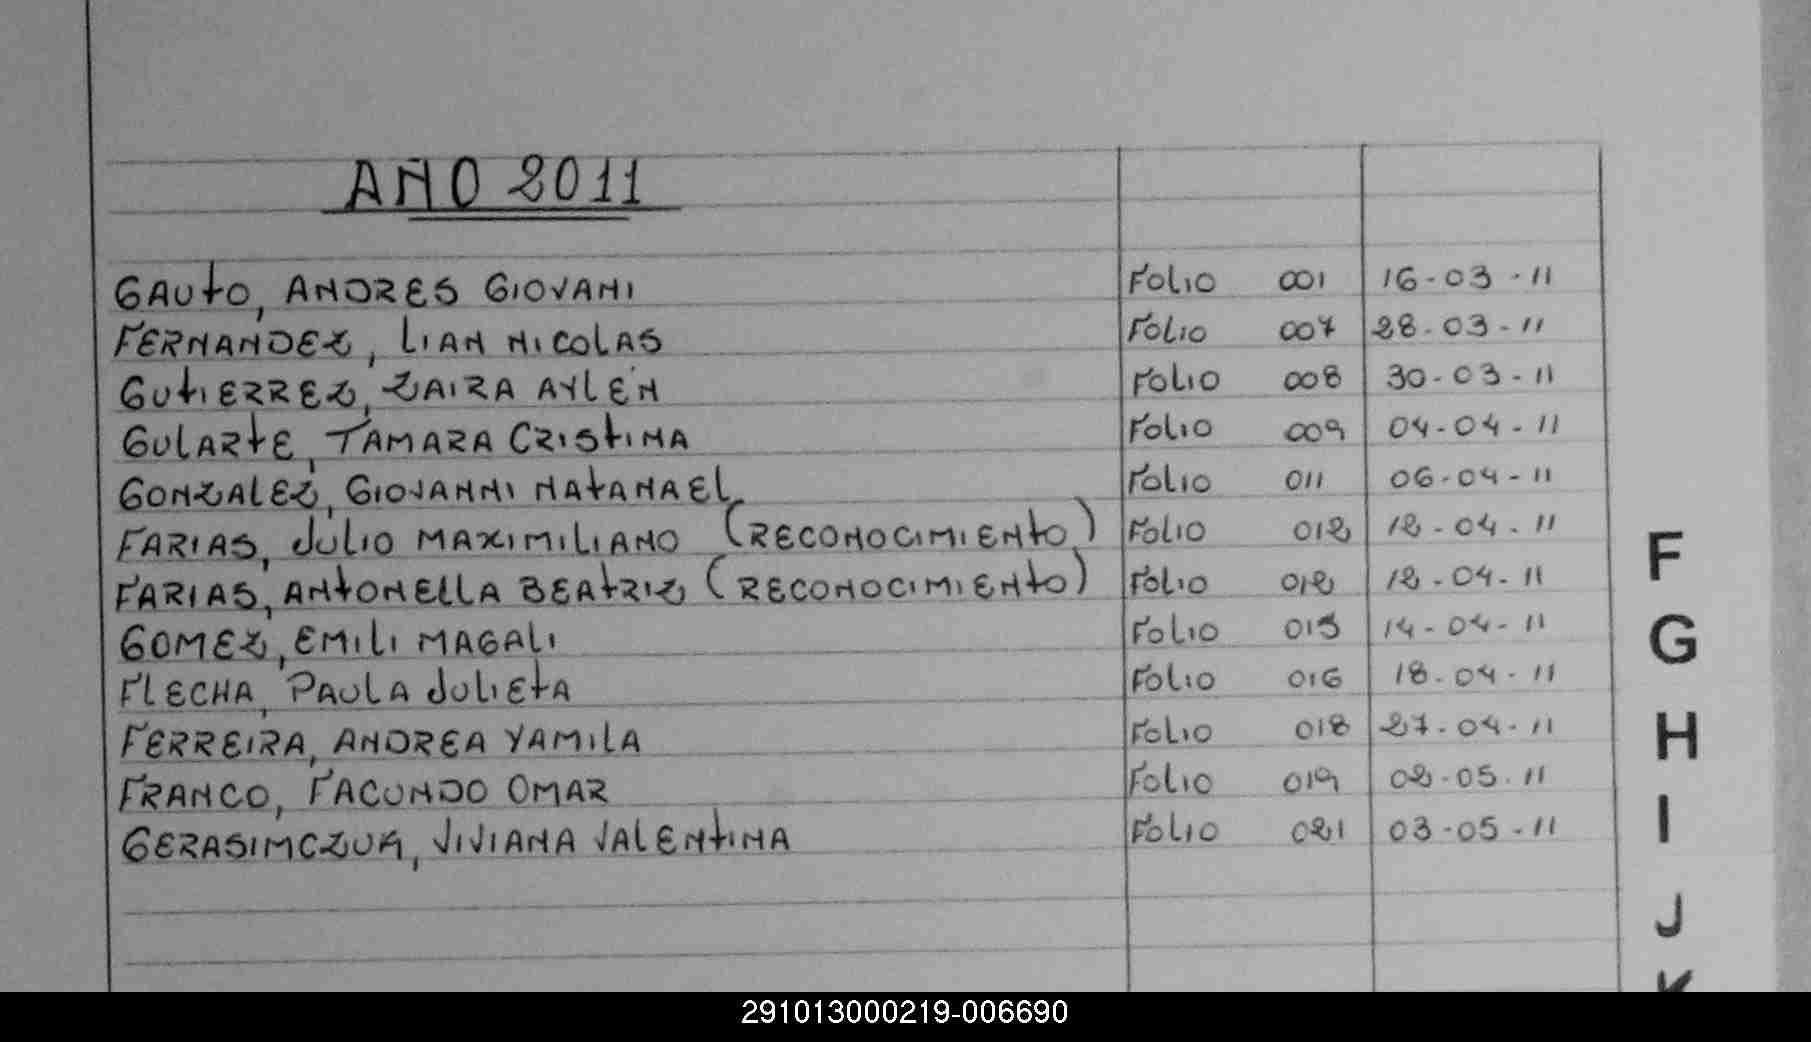 AÑO 2011
GAUTO, ANDRES GIOVANI Folio 001 16-03-11
FERNANDEZ, LIAN NICOLAS Folio 007 28-03-11
GUTIERREZ, ZAIRA AYLÉN Folio 008 30-03-11
GULARTE, TAMARA CRISTINA Folio 009 04-04-11
GONZALEZ, GIOVANNI NATANAEL Folio 011 06-04-11
FARIAS, JULIO MAXIMILIANO (RECONOCIMIENTO) Folio 012 12-04-11
FARIAS, ANTONELLA BEATRIZ (RECONOCIMIENTO) Folio 012 12-04-11
GOMEZ, EMILI MAGALI Folio 015 14-04-11
FLECHA, PAULA JULIETA Folio 016 18-04-11
FERREIRA, ANDREA YAMILA Folio 018 27-04-11
FRANCO, FACUNDO OMAR Folio 019 02-05-11
GERASIMCZUK, VIVIANA VALENTINA Folio 021 03-05-11
F
G
H
I
J
K
291013000219-006690